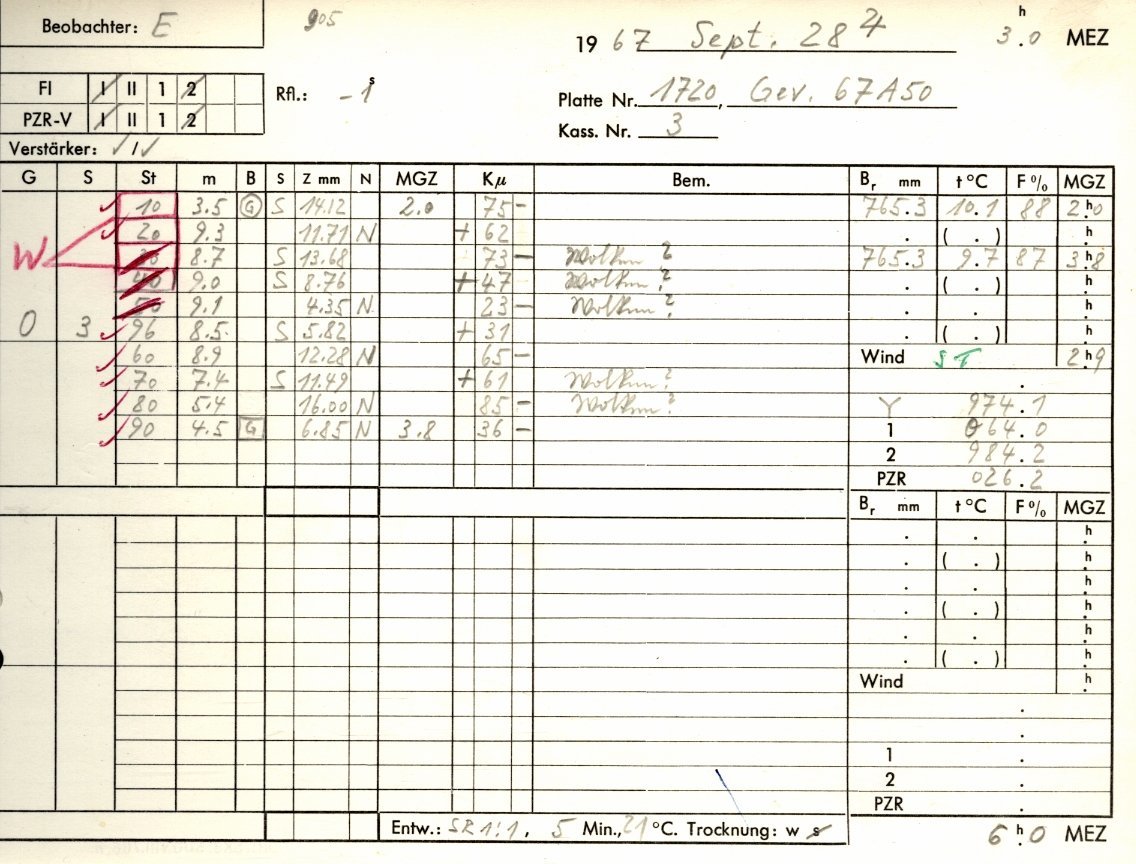 Beobachter: E 905
19 67 Sept. 28 3 h . 0 MEZ
FI I II 1 2 Rfl.: -1 s
Platte Nr. 1720, Gev. 67A50
PZR-V I II 1 2
Kass. Nr. 3
Verstärker: √/√
G S St m B S Z mm N MGZ Kμ Bem. Br mm t °C F % MGZ
10 3.5 G S 14.12 2.0 75 - 765.3 10.1 88 2 h 0
20 9.3 11.71 N + 62 . ( . ) h .
W 8.7 S 13.68 73 - Wolken ? 765.3 9.7 87 3 h 8
40 9.0 S 8.76 + 47 Wolken ? . ( . ) h .
50 9.1 4.35 N 23 - Wolken ? . . h .
0 3 96 8.5 S 5.82 + 31 . ( . ) h .
60 8.9 12.28 N 65 - Wind ST 2 h 9
70 7.4 S 11.49 + 61 Wolken ? .
80 5.4 16.00 N 85 - Wolken ? Y 974.1
90 4.5 G 6.85 N 3.8 36 - 1 064.0
2 984.2
PZR 026.2
Br mm t °C F % MGZ
. . h .
. ( . ) h .
. . h .
. ( . ) h .
. . h .
. ( . ) h .
Wind h .
.
.
1 .
2 .
PZR .
Entw.: SR 1:1, 5 Min., 21 °C. Trocknung: w s 6 h . 0 MEZ